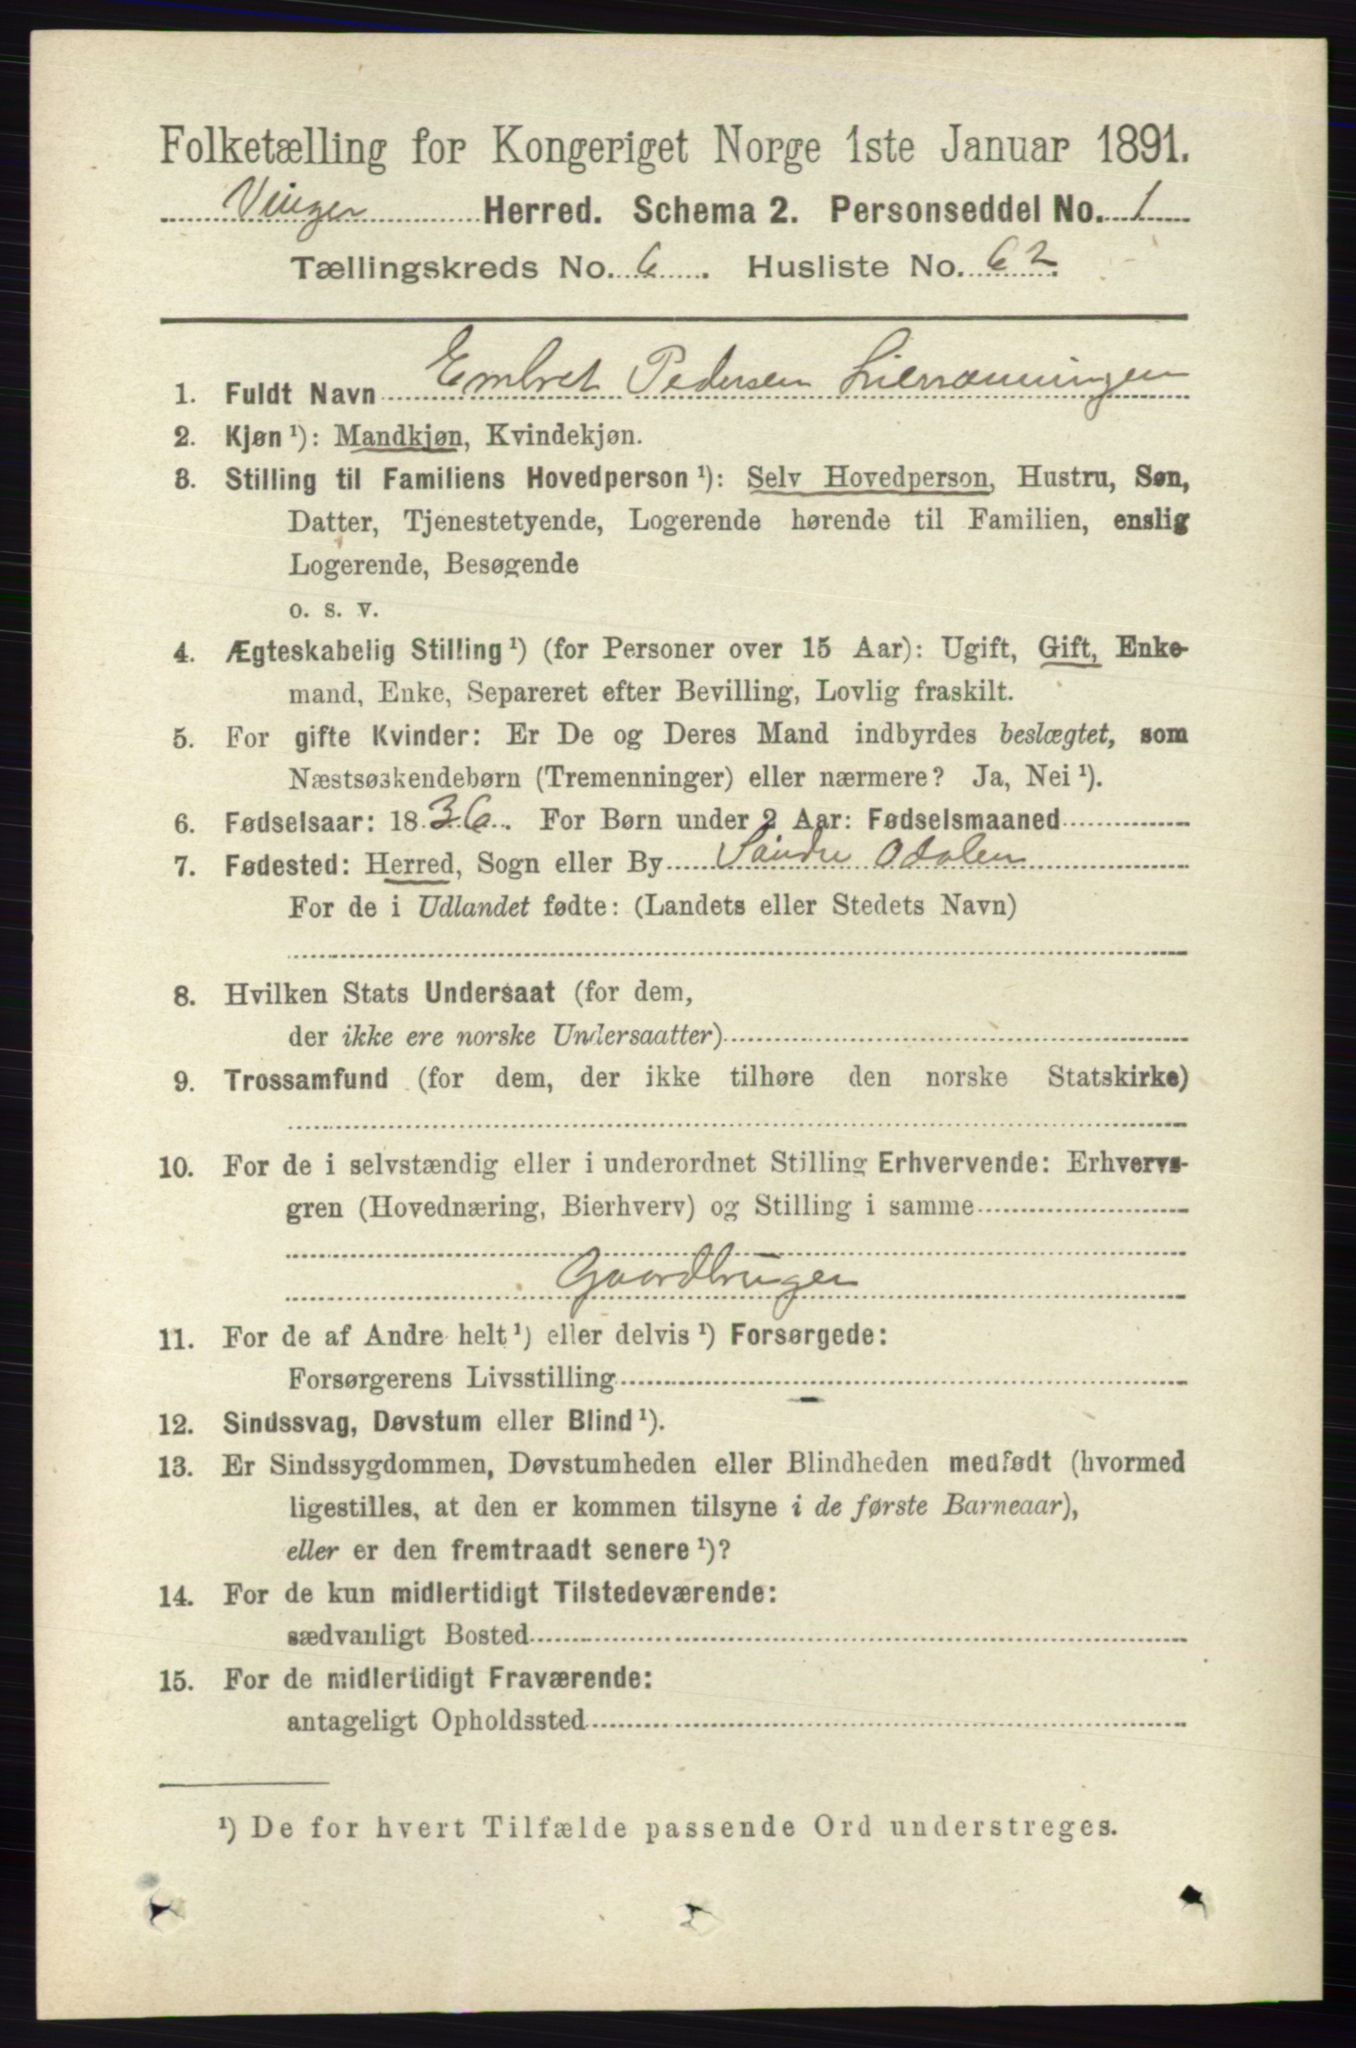 Folketælling for Kongeriget Norge 1ste Januar 1891.
Vinger Herred. Schema 2. Personseddel No. 1
Tællingskreds No. 6. Husliste No. 62.
1. Fuldt Navn Embret Pedersen Lierrønningen
2. Kjøn ¹): Mandkjøn, Kvindekjøn.
3. Stilling til Familiens Hovedperson ¹): Selv Hovedperson, Hustru, Søn,
Datter, Tjenestetyende, Logerende hørende til Familien, enslig
Logerende, Besøgende
o. s. v.
4. Ægteskabelig Stilling ¹) (for Personer over 15 Aar): Ugift, Gift, Enke-
mand, Enke, Separeret efter Bevilling, Lovlig fraskilt.
5. For gifte Kvinder: Er De og Deres Mand indbyrdes beslægtet, som
Næstsøskendebørn (Tremenninger) eller nærmere? Ja, Nei ¹).
6. Fødselsaar: 1836. For Børn under 2 Aar: Fødselsmaaned
7. Fødested: Herred, Sogn eller By Søndre Odalen
For de i Udlandet fødte: (Landets eller Stedets Navn)
8. Hvilken Stats Undersaat (for dem,
der ikke ere norske Undersaatter)
9. Trossamfund (for dem, der ikke tilhøre den norske Statskirke)
10. For de i selvstændig eller i underordnet Stilling Erhvervende: Erhvervs-
gren (Hovednæring, Bierhverv) og Stilling i samme
Gaardbruger
11. For de af Andre helt ¹) eller delvis ¹) Forsørgede:
Forsørgerens Livsstilling
12. Sindssvag, Døvstum eller Blind ¹).
13. Er Sindssygdommen, Døvstumheden eller Blindheden medfødt (hvormed
ligestilles, at den er kommen tilsyne i de første Barneaar),
eller er den fremtraadt senere ¹)?
14. For de kun midlertidigt Tilstedeværende:
sædvanligt Bosted
15. For de midlertidigt Fraværende:
antageligt Opholdssted
¹) De for hvert Tilfælde passende Ord understreges.